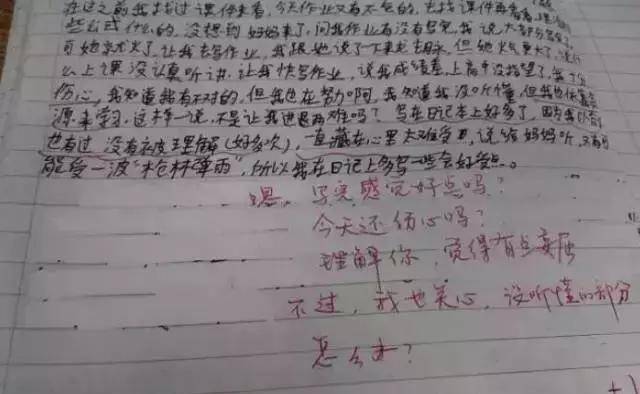 在这之前我找过课件来看，今天作业又有不会的，去找课件再看看
些公式什么的，没想到妈妈来了，问我作业有没有写完，我说大部分
可她就火了，让我去写作业，我跟她说了下来龙去脉，但她火气更大了
么上课没认真听讲，让我快写作业，说我成绩差，上高中没指望了
伤心，我知道我有不对的，但我也在努力啊，我知道我没听懂，但我也
源来学习，这样一说，不是让我进退两难吗？写在日记本上好多了，因为
也有过没有被理解(好多次)，一直藏在心里太难受了，说给妈妈听，又
能受一波“枪林弹雨”，所以我在日记上多写一些会好受点。
嗯，写完感觉好点吗？
今天还伤心吗？
理解你，觉得有点委屈
不过，我也关心，没听懂的部分
怎么办？